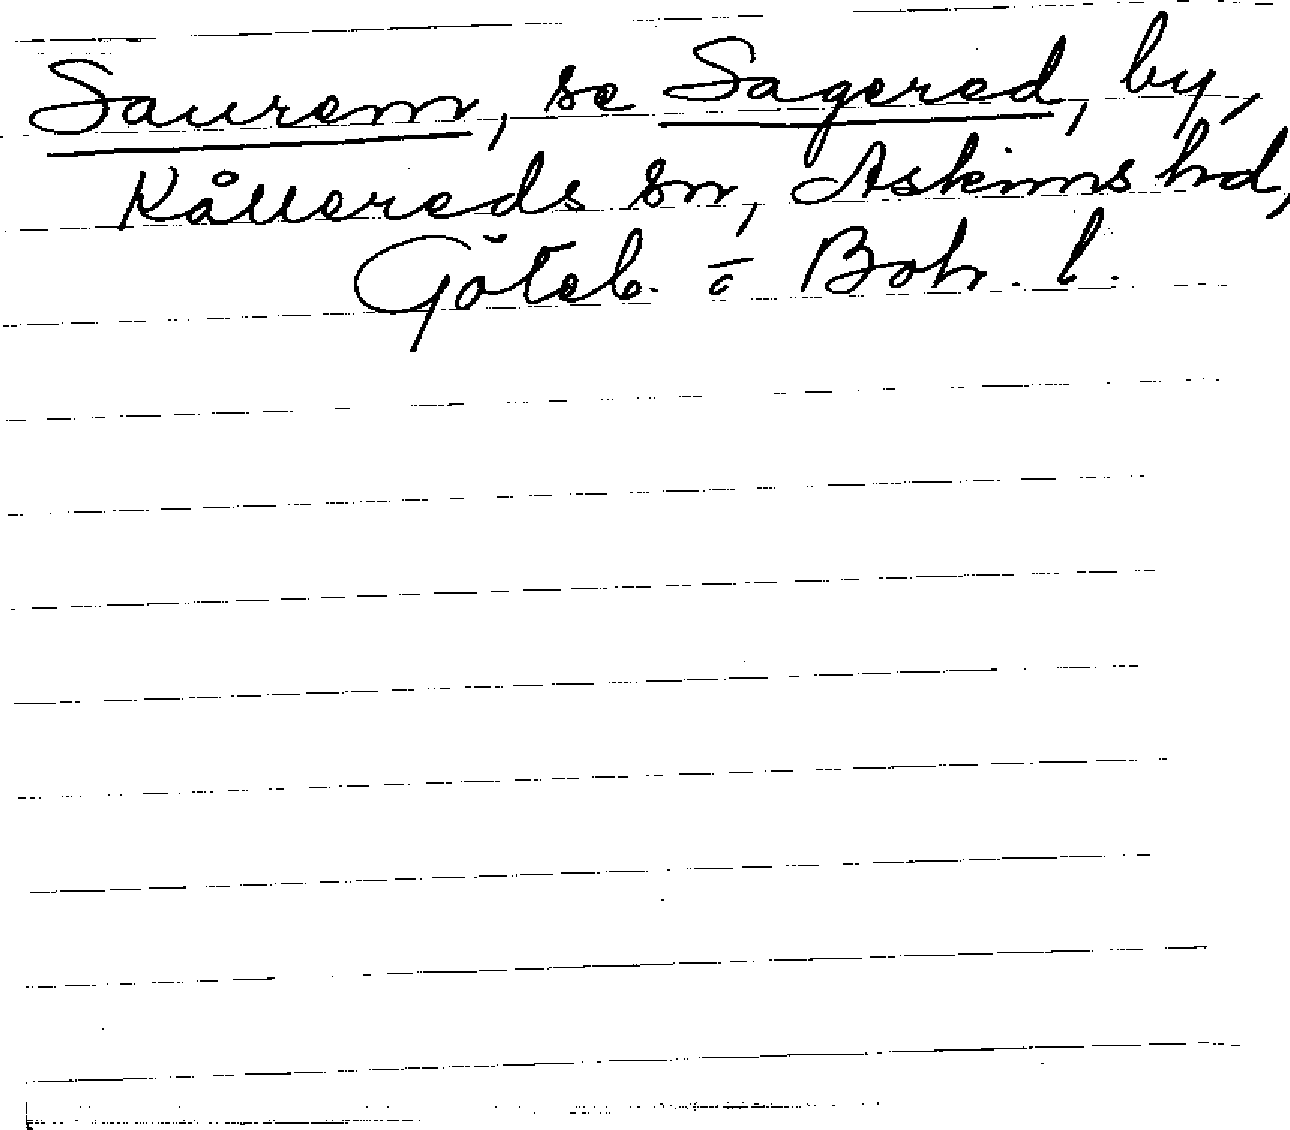 Saurem, se Sagered, by,
Kållereds sn, Askims hd,
Göteb. o Boh. l.